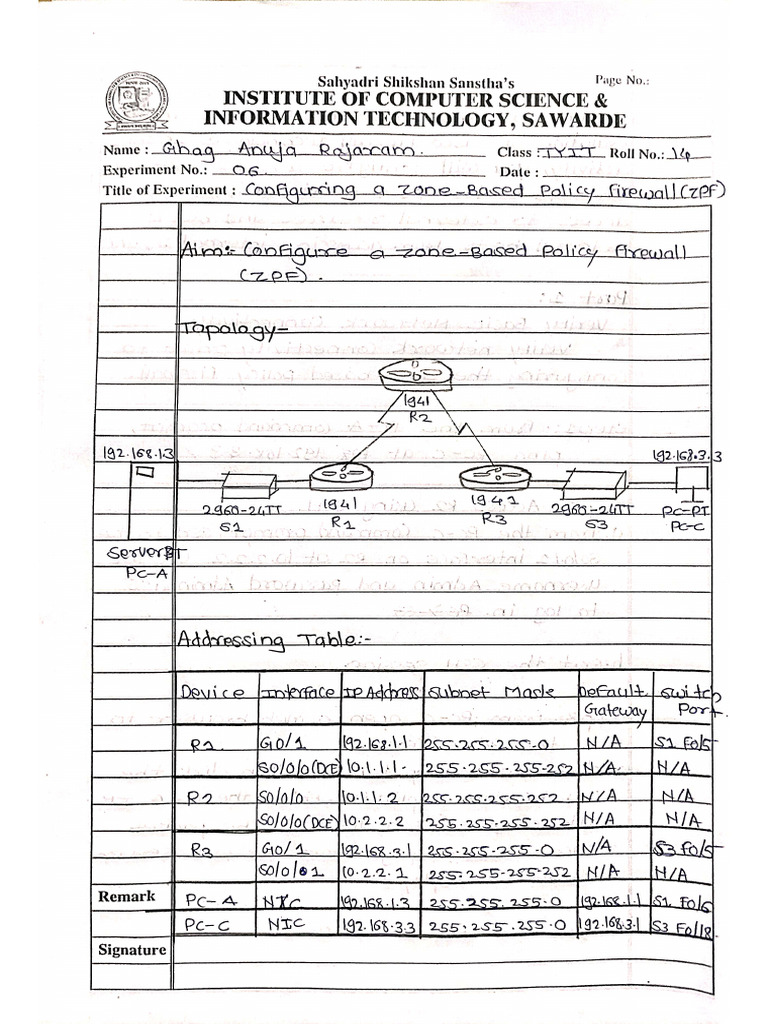 Sahyadri Shikshan Sanstha's
Page No.:
INSTITUTE OF COMPUTER SCIENCE &
INFORMATION TECHNOLOGY, SAWARDE
Name : Ghag Anuja Rajaram. Class : TYIT Roll No.: 14
Experiment No.: 06 Date :
Title of Experiment : Configurring a Zone-Based Policy Firewall (ZPF)
Aim:- Configure a Zone-Based Policy Firewall
(ZPF).
Topology-
1941
R2
192.168.1.3
192.168.3.3
2960-24TT
S1
1941
R1
1941
R3
2960-24TT
S3
PC-PT
PC-C
Server PT
PC-A
Addressing Table:-
Device Interface IP Address Subnet Mask Default Gateway Switch Port
R1 G0/1 192.168.1.1 255.255.255.0 N/A S1 F0/5
S0/0/0(DCE) 10.1.1.1 255.255.255.252 N/A N/A
R2 S0/0/0 10.1.1.2 255.255.255.252 N/A N/A
S0/0/0(DCE) 10.2.2.2 255.255.255.252 N/A N/A
R3 G0/1 192.168.3.1 255.255.255.0 N/A S3 F0/5
S0/0/1 10.2.2.1 255.255.255.252 N/A N/A
PC-A NIC 192.168.1.3 255.255.255.0 192.168.1.1 S1 F0/6
PC-C NIC 192.168.3.3 255.255.255.0 192.168.3.1 S3 F0/18
Remark
Signature